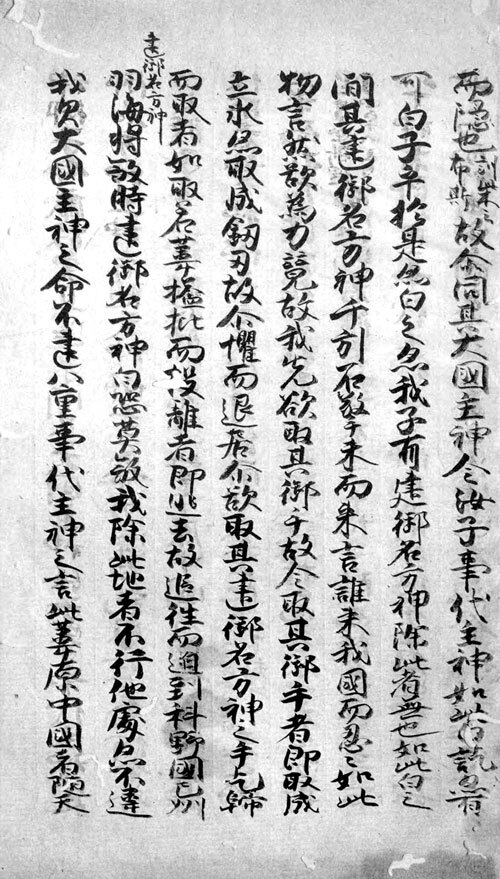 而隠也訓柴云布斯故尓問其大國主神今汝子事代主神如此白訖亦有
可白子乎於是亦白之亦我子有建御名方神除此者無也如此白之
間其建御名方神千引石擎手末而来言誰来我國而忍々如此
物言然欲為力競故我先欲取其御手故令取其御手者即取成
立氷亦取成釼刃故尓懼而退居尓欲取其建御名方神之手乞歸
而取者如取若葦搤批而投離者即迯去故追往而迫到科野國之州
建御名方神
羽海将殺時建御名方神白恐莫殺我除此地者不行他處亦不違
我父大國主神之命不違八重事代主神之言此葦原中國者隨天